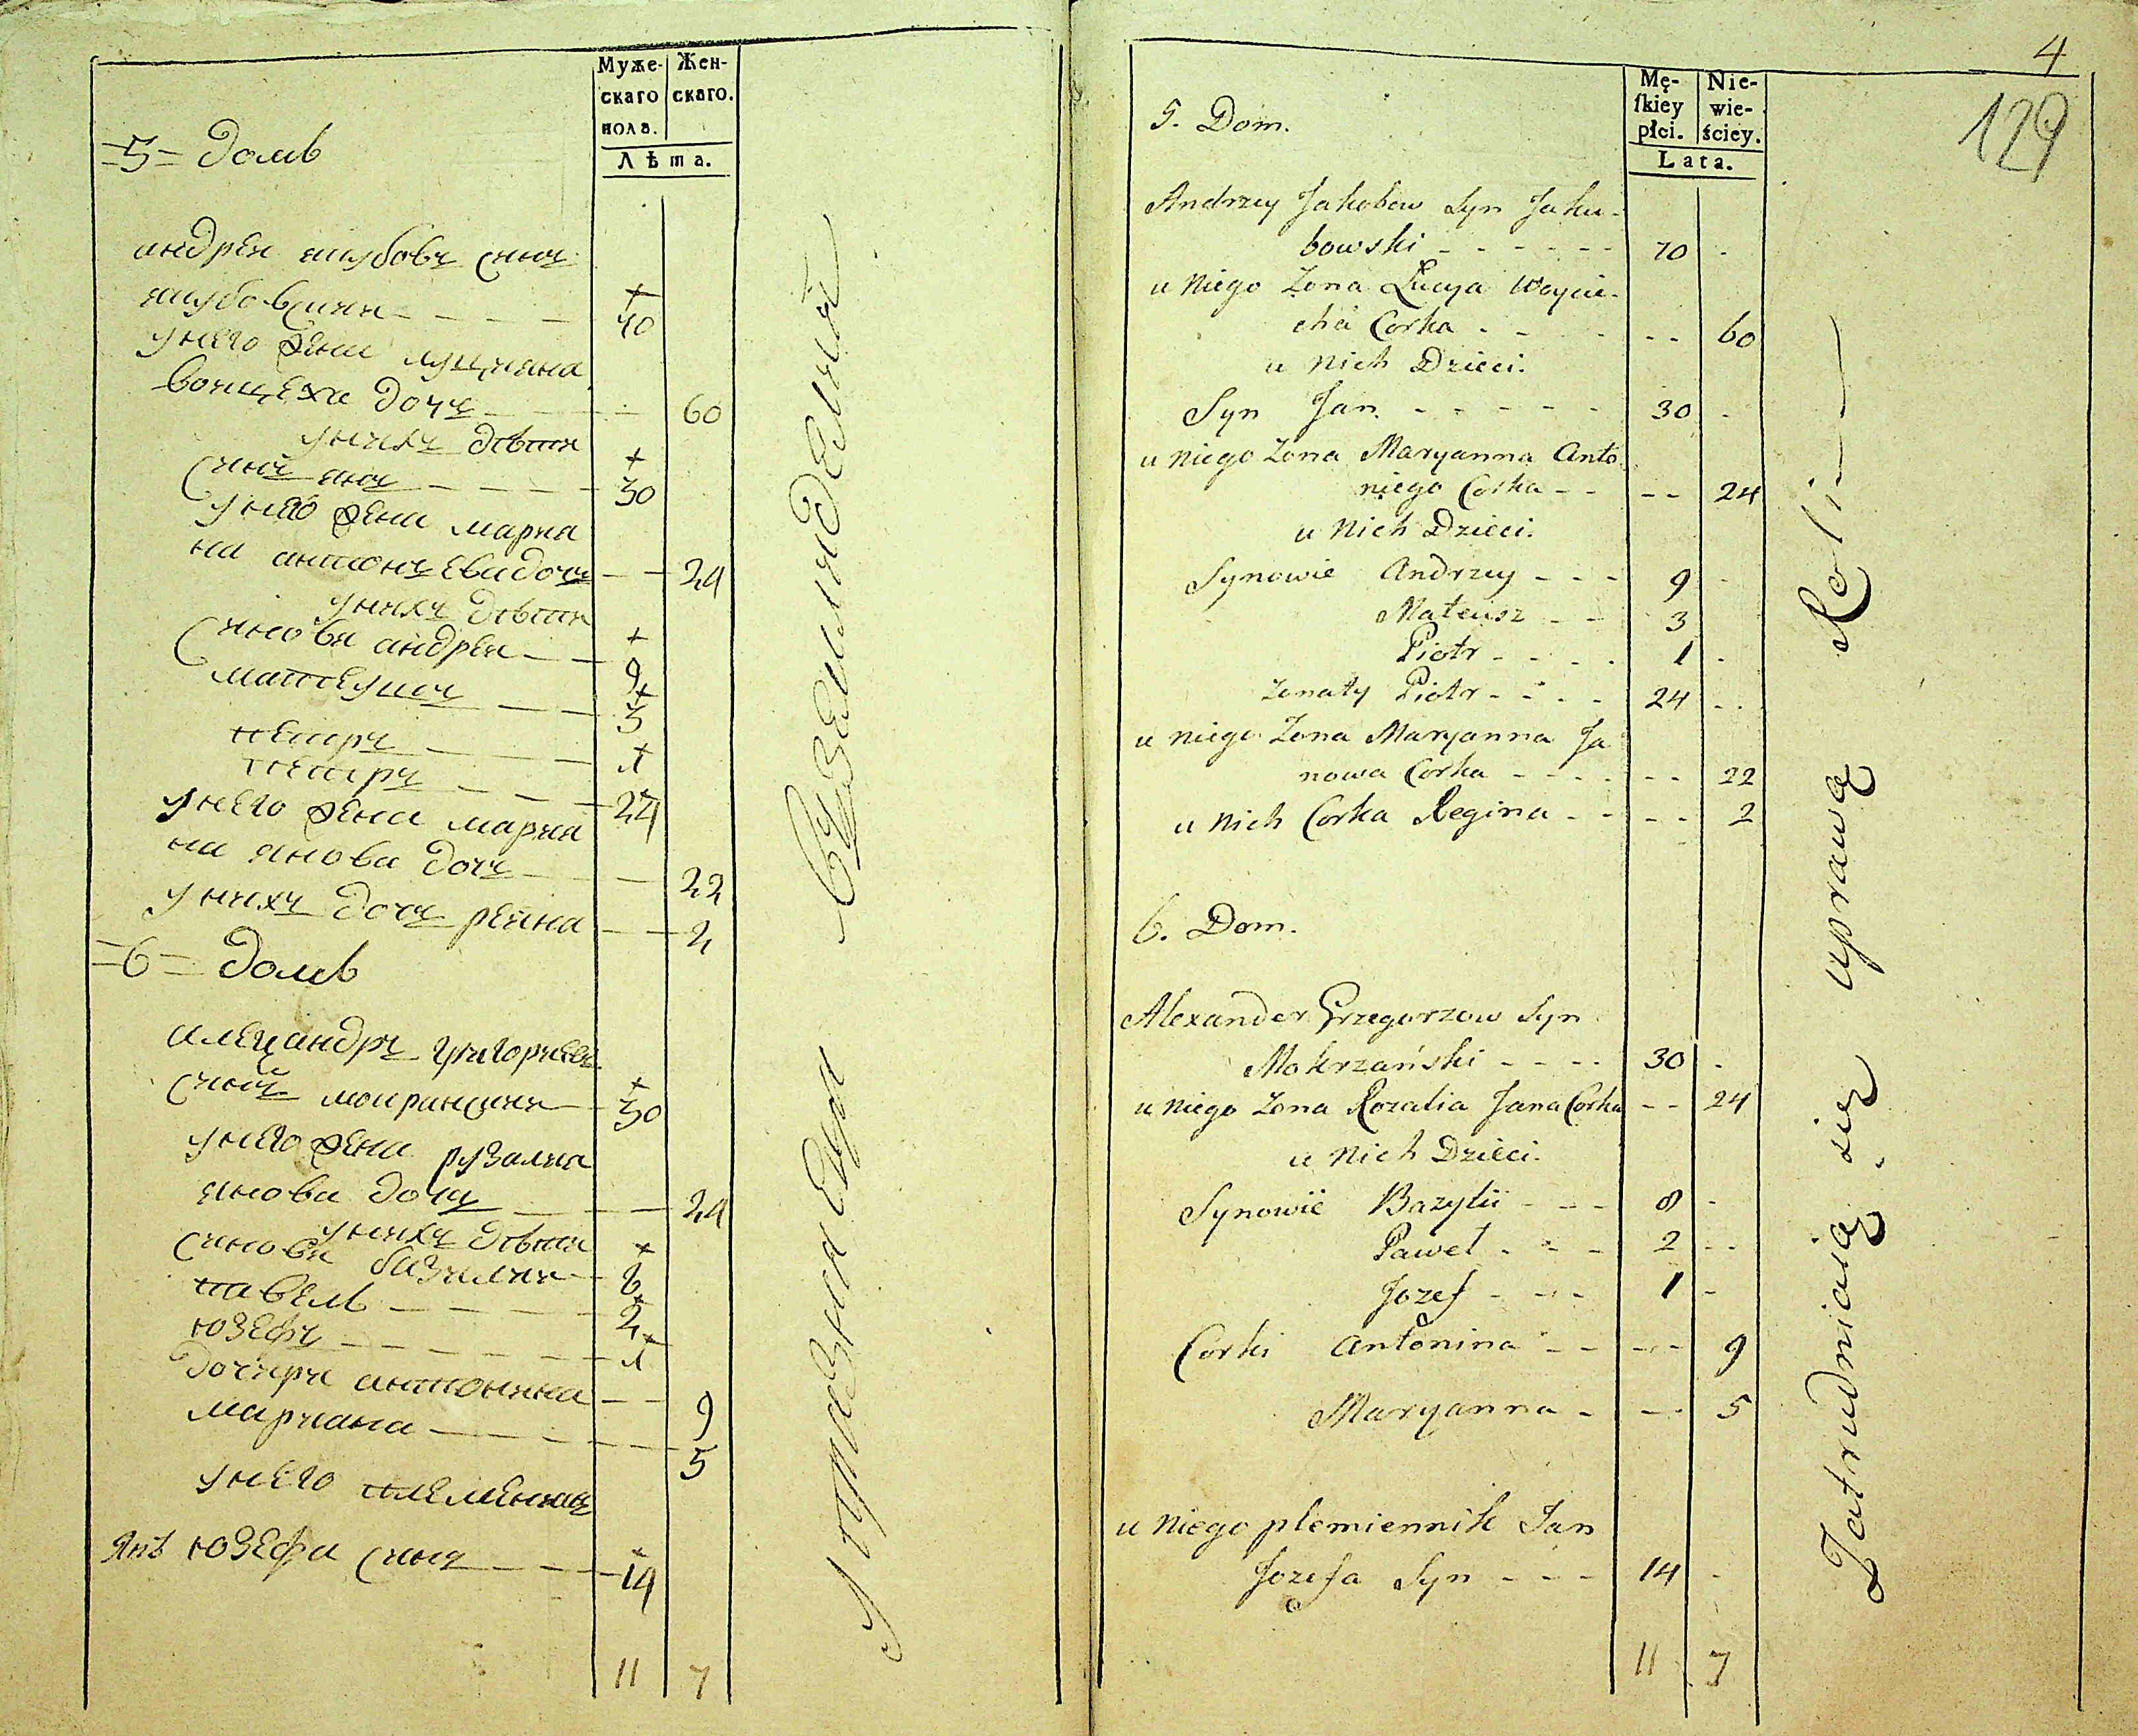 Муже- Жен-
скаго скаго.
пола.
Лѣта.
=5= домъ
андреи якубовъ синъ
якубовский - - - - 70
у него жена луцыяна
войцеха дочъ - - - 60
у нихъ дѣти
синъ янъ - - - - 30
у него жена мария
на антонъева дочъ - - 24
у нихъ дѣти
синови андреи - - 9
матеушъ - - 3
петръ - - - 1
петръ - - - 24
у него жена мариа
на янова дочъ - - - 22
у нихъ дочъ реина - - 2
=6= домъ
алеѯандръ григориевъ
синъ мокранский - 30
у него жена рузалиа
янова дочъ - - - 24
у нихъ дѣти
синови базилий - 8
павелъ - - - - 2
юзефъ - - - - 1
дочери антонина - - 9
мариана - - - - - 5
у него племеникъ
янъ юзефа синъ - - - 14
11 7
упражняюца възємляделий
4
129
Mę- Nie-
ſkiey wie-
płci. ściey.
Lata.
5. Dom.
Andrzey Jakobow Syn Jaku-
bowski - - - - - - 70 -
u Niego Zona Łucya Woycie-
cha Corka - - - - 60
u Nich Dzieci.
Syn Jan. - - - - - 30 -
u niego Zona Maryanna Anto
niego Corka - - - - 24
u Nich Dzieci.
Synowie Andrzey - - - 9 -
Mateusz - - 3
Piotr - - - - 1 -
Zonaty Piotr - - - - 24 - -
u niego Zona Maryanna Ja
nowa Corka - - - - - - 22
u Nich Corka Regina - - - - 2
6. Dom.
Alexander Grzegorzow Syn
Mokrzański - - - - 30 -
u niego Zona Rozalia Jana Corka - - 24
u Nich Dzieci.
Synowie Bazylii - - - 8 -
Paweł - - - 2 - -
Jozef - - - 1 -
Corki Antonina - - - - 9
Maryanna - - - 5
u Niego plemiennik Jan
Jozefa Syn - - - 14 -
11 7
Zatrudniaią się uprawą Roli -